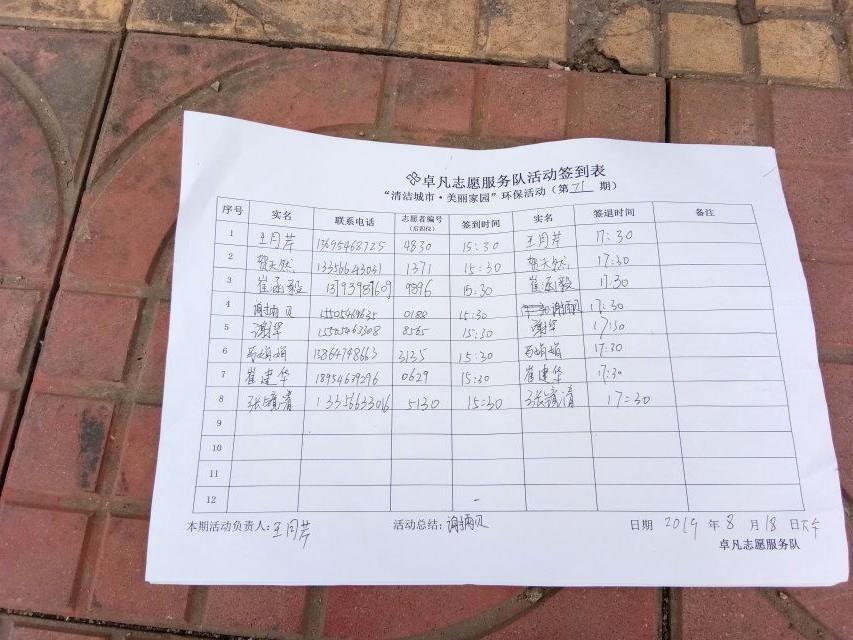 卓凡志愿服务队活动签到表
“清洁城市·美丽家园”环保活动（第 71 期）
序号 实名 联系电话 志愿者编号（后四位） 签到时间 实名 签退时间 备注
1 王同芹 13695468725 4830 15:30 王同芹 17:30
2 贺天然 13356643031 1371 15:30 贺天然 17:30
3 崔函毅 13793987609 9896 15:30 崔函毅 17:30
4 15505469635 0188 15:30 17:30
5 谢华 15505463308 8565 15:30 谢华 17:30
6 13864748663 3135 15:30 17:30
7 崔建华 18954679296 0629 15:30 崔建华 17:30
8 13356633016 5130 15:30 17:30
9
10
11
12
本期活动负责人：王同芹 活动总结： 日期 2019 年 8 月 18 日下午
卓凡志愿服务队